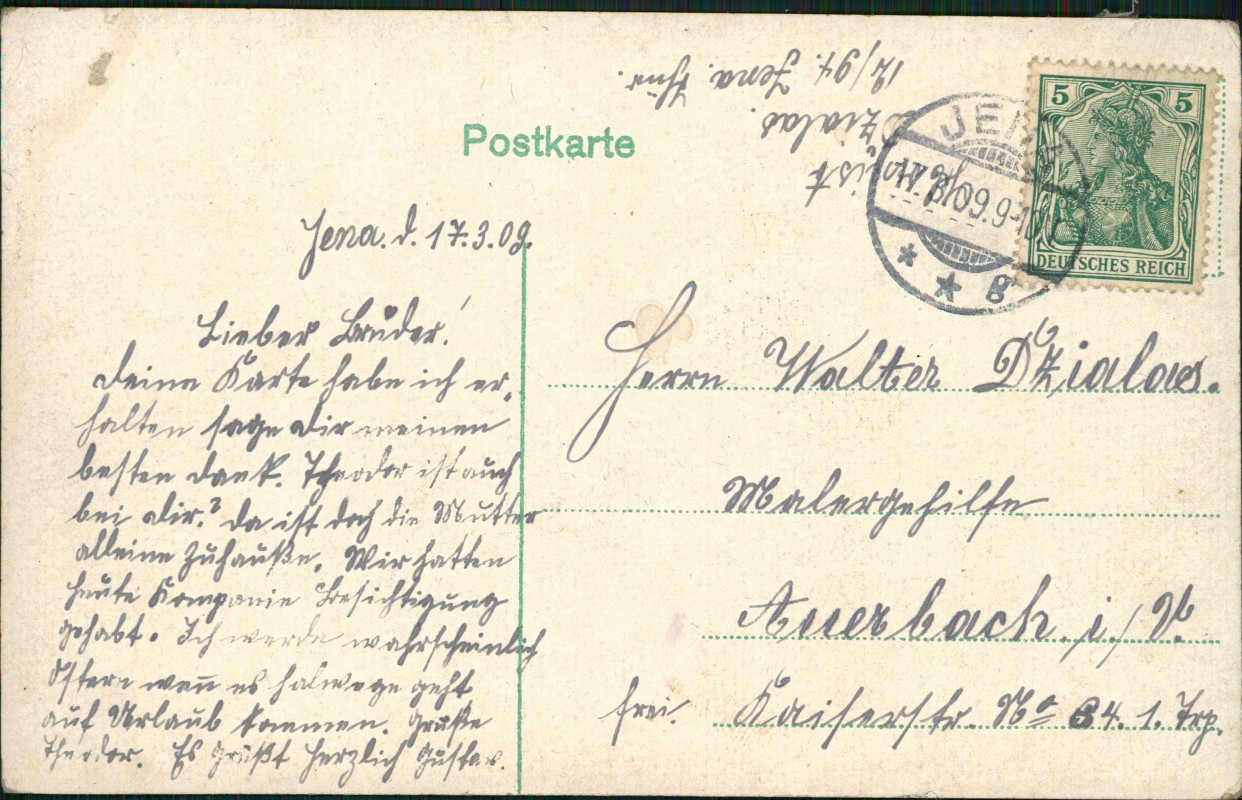 Postkarte
12/94. Jena. Thür.
Dzialas.
JENA
17.3.09.9-10
* * g
5 5
DEUTSCHES REICH
Jena. d. 17.3.09.
Lieber Bruder!
deine Karte habe ich er-
halten sage dir meinen
besten dank. Theodor ist auch
bei dir? da ist doch die Mutter
alleine Zuhauße. Wir hatten
heute Kompanie Besichtigung
gehabt. Ich werde wahrscheinlich
Ostern wen̄ es halwege geht
auf Urlaub kommen. Grüße
Theodor. Es Grüßt Herzlich Gustav.
Herrn Walter Dzialas.
Malergehilfe
Auerbach. i./V.
frei. Kaiserstr. No 34. 1. Trp.